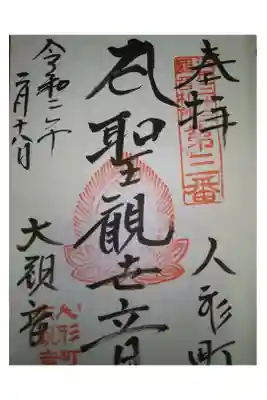 奉拝
第三番
人形町
聖観世音
大観音
令和二年
二月十八日
人形町